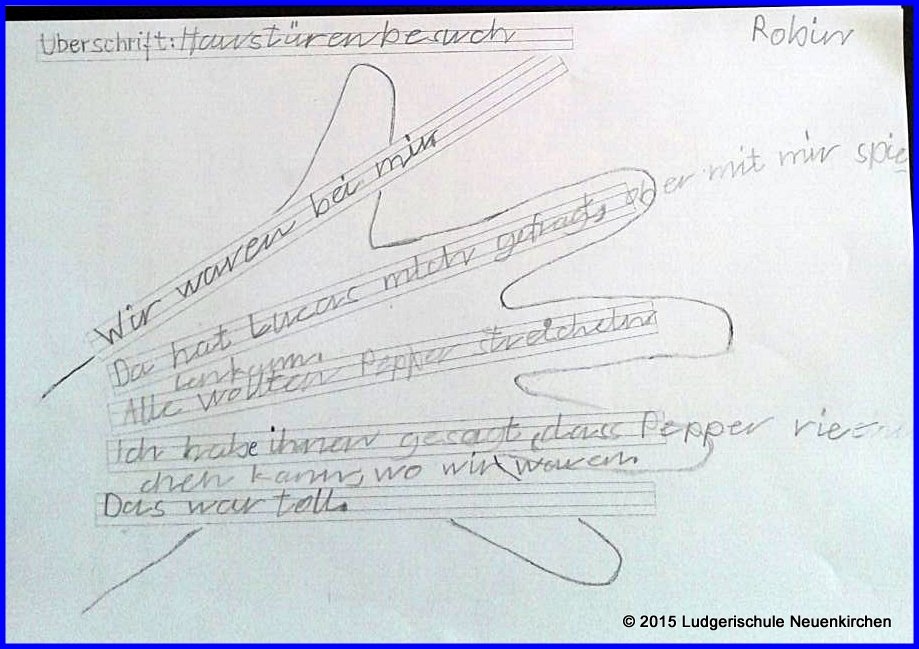 Überschrift: Haustürenbesuch
Robin
Wir waren bei mir
Da hat Lucas mich gefragt, ob er mit mir spie
len kann.
Alle wollten Pepper streicheln.
Ich habe ihnen gesagt, dass Pepper rie
chen kann, wo wir waren.
Das war toll.
© 2015 Ludgerischule Neuenkirchen